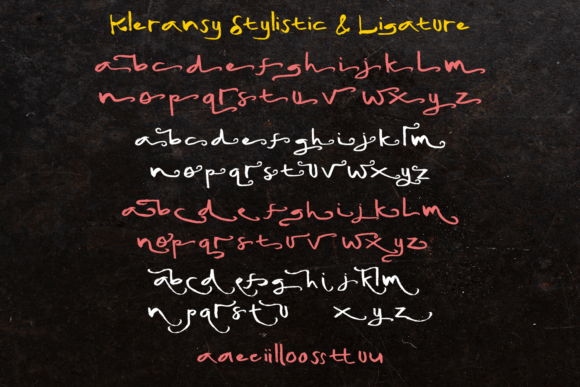 Kleransy Stylistic & Ligature
abcdefghijklm
nopqrstuvwxyz
abcdefghijklm
nopqrstuvwxyz
abcdefghijklm
nopqrstuvwxyz
abcdefghijklm
npqrstu xyz
aaeciilloossttuu